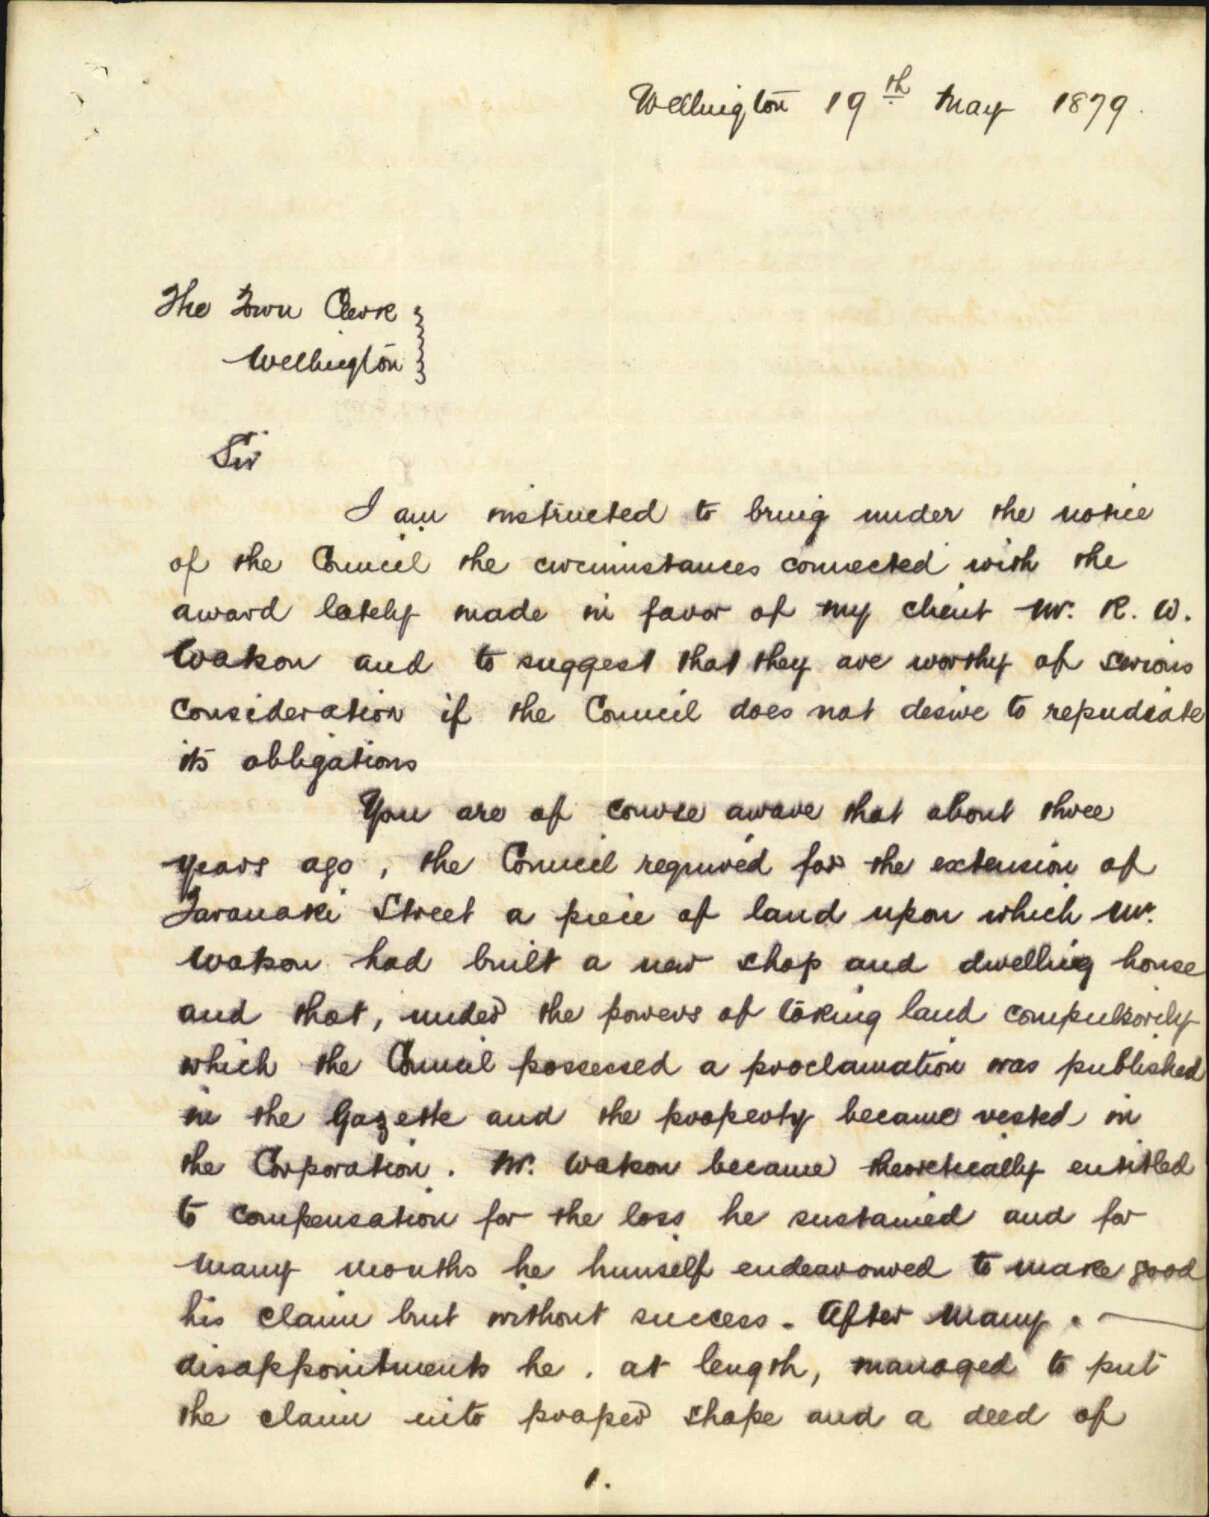 Wellington 19th May 1879.
The Town Clerk
Wellington
Sir
I am instructed to bring under the notice
of the Council the circumstances connected with the
award lately made in favor of my client Mr. R. W.
Watson and to suggest that they are worthy of serious
consideration if the Council does not desire to repudiate
its obligations
You are of course aware that about three
years ago, the Council required for the extension of
Taranaki Street a piece of land upon which Mr.
Watson had built a new shop and dwelling house
and that, under the powers of taking land compulsorily
which the Council possessed a proclamation was published
in the Gazette and the property became vested in
the Corporation. Mr. Watson became theoretically entitled
to compensation for the loss he sustained and for
many months he himself endeavoured to make good
his claim but without success. After many
disappointments he, at length, managed to put
the claim into proper shape and a deed of
1.